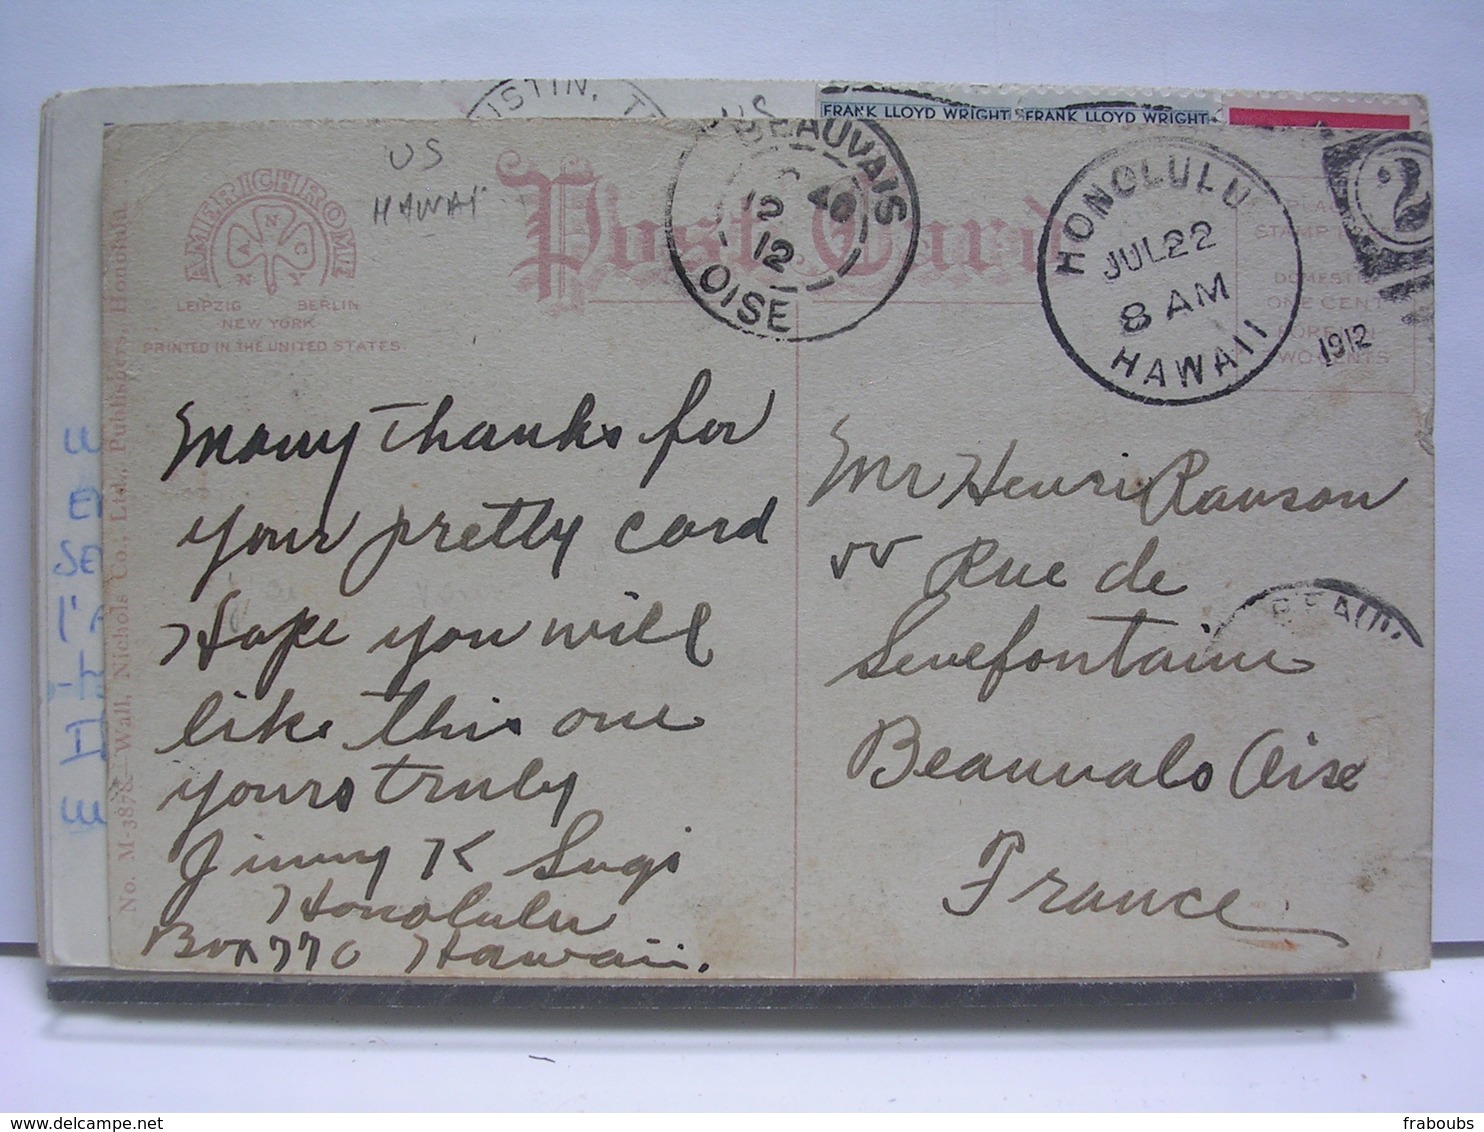 USTIN, T
US
FRANK LLOYD WRIGHT FRANK LLOYD WRIGHT
US
HAWAI
AMERICHROME
A N C N Y
LEIPZIG BERLIN
NEW YORK
PRINTED IN THE UNITED STATES.
Post Card
BEAUVAIS
12 40
12
OISE
HONOLULU
JUL 22
8 AM
HAWAII
1912
2
PLACE
STAMP
DOMESTIC
ONE CENT
FOREIGN
TWO CENTS
No. M-3878 Wall, Nichols Co., Ltd., Publishers, Honolulu.
Many thanks for
your pretty card
Hope you will
like this one
yours truly
Jimmy K Sugi
Honolulu
Box 770 Hawaii.
Mr Henri Ranson
55 Rue de
Senefontaine
Beauvais Oise
France
BEAUV